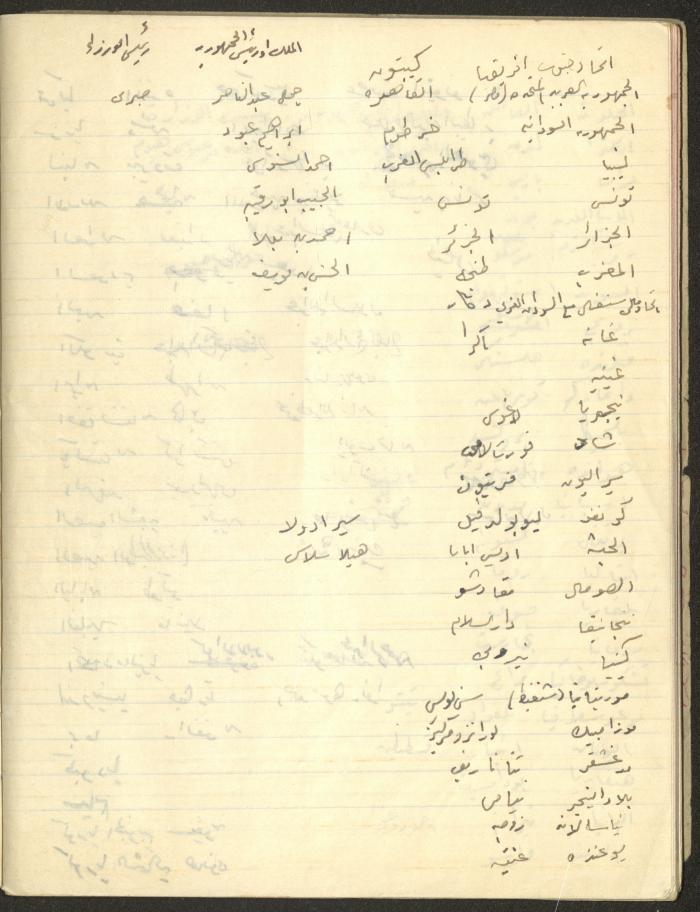 الملك او رئيس الجمهورية رئيس الوزراء
اتحاد جنوب افريقيا كيبتون
الجمهورية العربية المتحدة (مصر) القاهرة جمال عبد الناصر صبري
الجمهورية السودانية خرطوم ابراهيم عبود
ليبيا طرابلس الغرب احمد السنوسي
تونس تونس الحبيب ابو رقيبه
الجزائر الجزئر احمد بن بيلا
المغرب طنجه الحسن
اتحاد مالي سنغال مع السودان الغربي دكار
غانه اكرا
غينيه
نيجيريا لاغوس
شاد فورتلامي
سيراليون فريتون
كونغو ليوبولدفيل سيرادولا
الحبشة اديس ابابا هيلاسلاسي
الصومال مقادشو
تنجانيقا دار السلام
كينيا نيروبي
موريتانيا (شنقيط) سن لويس
موزامبيك لورانزو مركيز
مدغشقر تناناريف
بلاد النيجر نيامي
نياسالاند زومبه
يوغنده عنتبه